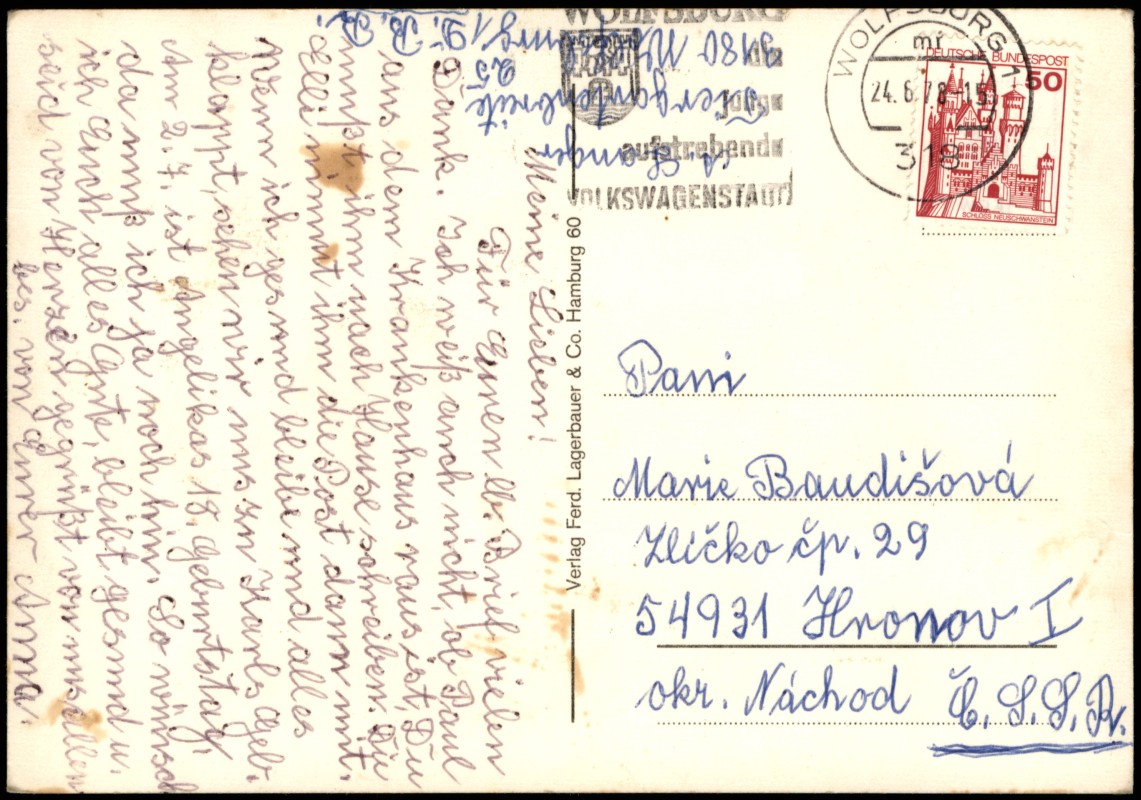 Meine Lieben!
Für Euren lb. Brief vielen
Dank. Ich weiß auch nicht, ob Paul
aus dem Krankenhaus raus ist, Du
mußt ihm nach Hause schreiben. Die
Elli nimmt ihm die Post dann mit.
Wenn ich gesund bleibe und alles
klappt, sehen wir uns zu Karls Geb.
Am 2.7. ist Angelikas 18. Geburtstag,
da muß ich ja noch hin. So wünsch
ich Euch alles Gute, bleibt gesund u.
seid von Herzen gegrüßt von uns allen
bes. von Eurer Anna.
A.
25
3180
1
D. B. R.
WOLFSBURG
die
junge
aufstrebende
VOLKSWAGENSTADT
WOLFSBURG 1
mf
24.6.78-15
318
DEUTSCHE BUNDESPOST
50
SCHLOSS NEUSCHWANSTEIN
Verlag Ferd. Lagerbauer & Co. Hamburg 60
Pani
Marie Baudišová
Zličko čp. 29
54931 Hronov I
okr. Náchod Č.S.S.R.